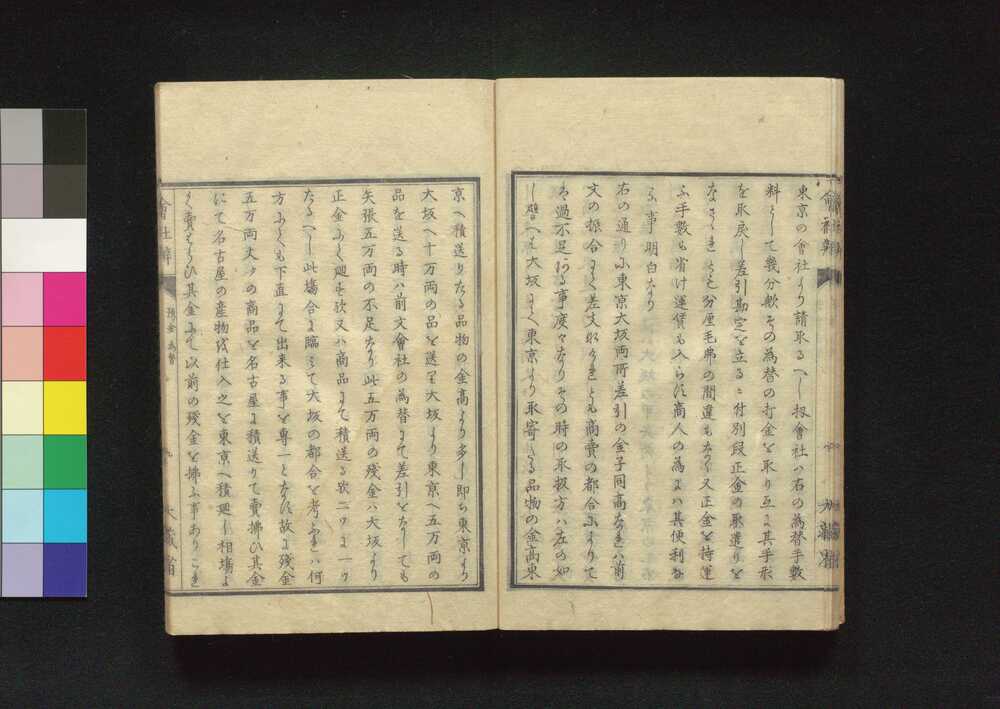 東京の會社より請取るへし扨會社ハ右の為替手數
料として幾分歟つゝの為替の打金を取り互に其手形
を取戻し差引勘定を立るに付別段正金の取遣りを
なさゝれとも分厘毛弗の間違もなく又正金を持運
ふ手數も省け運賃も入らす商人の為にハ其便利な
る事明白なり
右の通りに東京大坂両所差引の金子同高なれハ前
文の振合にて差支なけれとも商賣の都合によりて
ハ過不足ある事度々なりその時の取扱方ハ左の如
し譬へは大坂にて東京より取寄たる品物の金高東
京へ積送りたる品物の金高より多し即ち東京より
大坂へ十万両の品を送り大坂より東京へ五万両の
品を送る時ハ前文會社の為替にて差引をなしても
矢張五万両の不足なり此五万両の残金ハ大坂より
正金にて廻す歟又ハ商品にて積送る歟二ツに一ツ
たるへし此塲合に臨ミて大坂の都合を考ふれハ何
方にても下直にて出来る事を専一となす故に残金
五万両丈ケの商品を名古屋に積送りて賣拂ひ其金
にて名古屋の産物を仕入之を東京へ積廻し相塲よ
く賣はらひ其金にて以前の残金を拂ふ事ありこれ
會社辨
預金 為替
大藏省